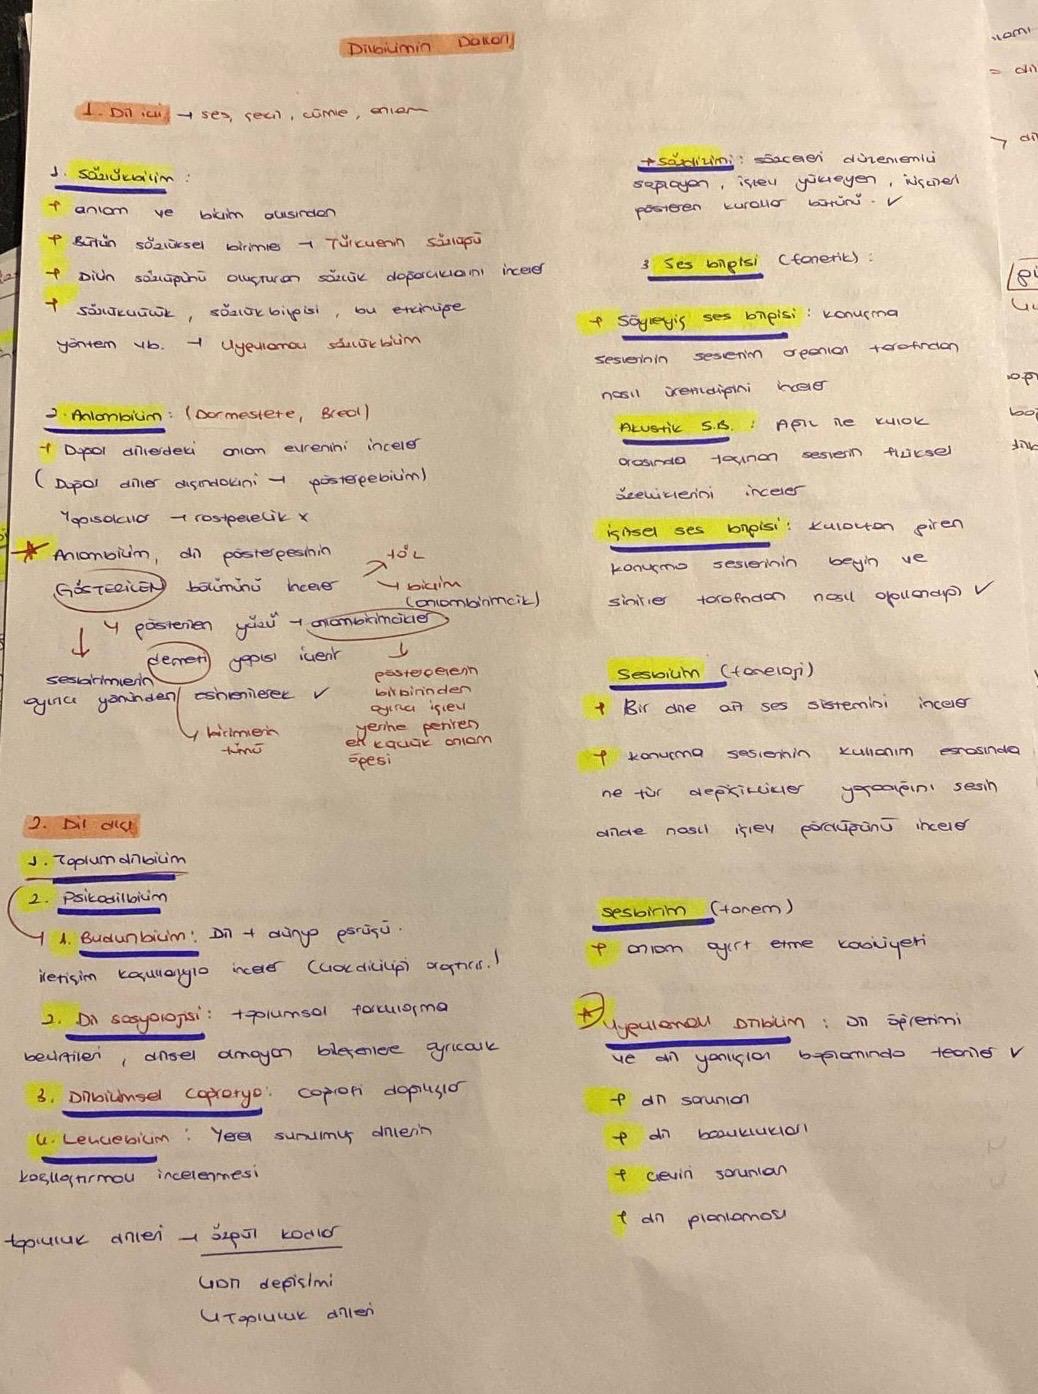 Dilbilimin Dalları
1. Dil içi → ses, şekil, cümle, anlam
1. Sözlükbilim :
+ anlam ve biçim açısından
+ Bütün sözlüksel birimler → Türkçenin sözlüğü
+ Dilin sözlüğünü oluşturan sözlük dağarcıklarını inceler
+ Sözlükçülük, sözlük bilgisi, bu etkinliğe
yöntem vb. → Uygulamalı sözlükbilim
2. Anlambilim : (Darmestete, Breal)
+ Doğal dillerdeki anlam evrenini inceler
(Doğal diller dışındakini → göstergebilim)
Yapısalcılar → rastgelelik x
★ Anlambilim, dil göstergesinin
GÖSTERİLEN bölümünü inceler
→ töz
→ biçim
(anlambirimcik)
↳ gösterilen yüzü → anlambirimcikler
demeti yapısı içerir
↓ sesbirimlerin
ayırıcı yanından esinlenilerek ✓
↳ birimlerin
tümü
↓
göstergelerin
birbirinden
ayırıcı işlev
yerine getiren
en küçük anlam
öğesi
2. Dil dışı
1. Toplumdilbilim
2. Psikodilbilim
1. Budunbilim : Dil + dünya görüşü.
iletişim koşullarıyla inceler (çokdilliliği araştırır.)
2. Dil sosyolojisi : toplumsal farklılaşma
belirtileri, dilsel olmayan bileşenlere ayrıcalık
3. Dilbilimsel coğrafya : coğrafi dağılışlar
4. Lehçebilim : Yerel sunulmuş dillerin
karşılaştırmalı incelenmesi
topluluk dilleri → özgül kodlar
↳ Dil değişimi
↳ Topluluk dilleri
→ Sözdizimi : sözceleri düzenlemeli
sağlayan, işlev yükleyen, ilişkileri
gösteren kurallar bütünü. ✓
3 Ses bilgisi (fonetik) :
+ Söyleyiş ses bilgisi : konuşma
seslerinin seslerim organları tarafından
nasıl üretildiğini inceler
Akustik S.B. : Ağız ile kulak
arasında taşınan seslerin fiziksel
özelliklerini inceler
işitsel ses bilgisi : kulaktan giren
konuşma seslerinin beyin ve
sinirler tarafından nasıl algılandığı ✓
Sesbilim (fonoloji)
+ Bir dile ait ses sistemini inceler
+ konuşma seslerinin kullanım esnasında
ne tür değişiklikler yaşadığını sesin
dilde nasıl işlev gördüğünü inceler
Sesbirim (fonem)
+ anlam ayırt etme kabiliyeti
★ Uygulamalı Dilbilim : Dil öğretimi
ve dil yanlışları bağlamında teoriler ✓
+ dil sorunları
+ dil bozuklukları
+ çeviri sorunları
+ dil planlaması